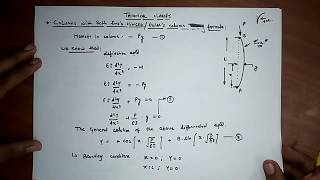 Technical Classes
Columns with both ends Hinged / Euler's column formula:
Moment in column = - Py — ①
we know that
deflection eqⁿ
EI d²y/dx² = -M
EI d²y/dx² = - Py
EI d²y/dx² + Py = 0
d²y/dx² + P/EI y = 0 — ②
The General solution of the above differential eqⁿ.
Y = A cos [x · √P/EI] + B sin [x · √P/EI] — ③
In Boundary condition x=0, y=0
x=L, y=0
P
L
x
y
P